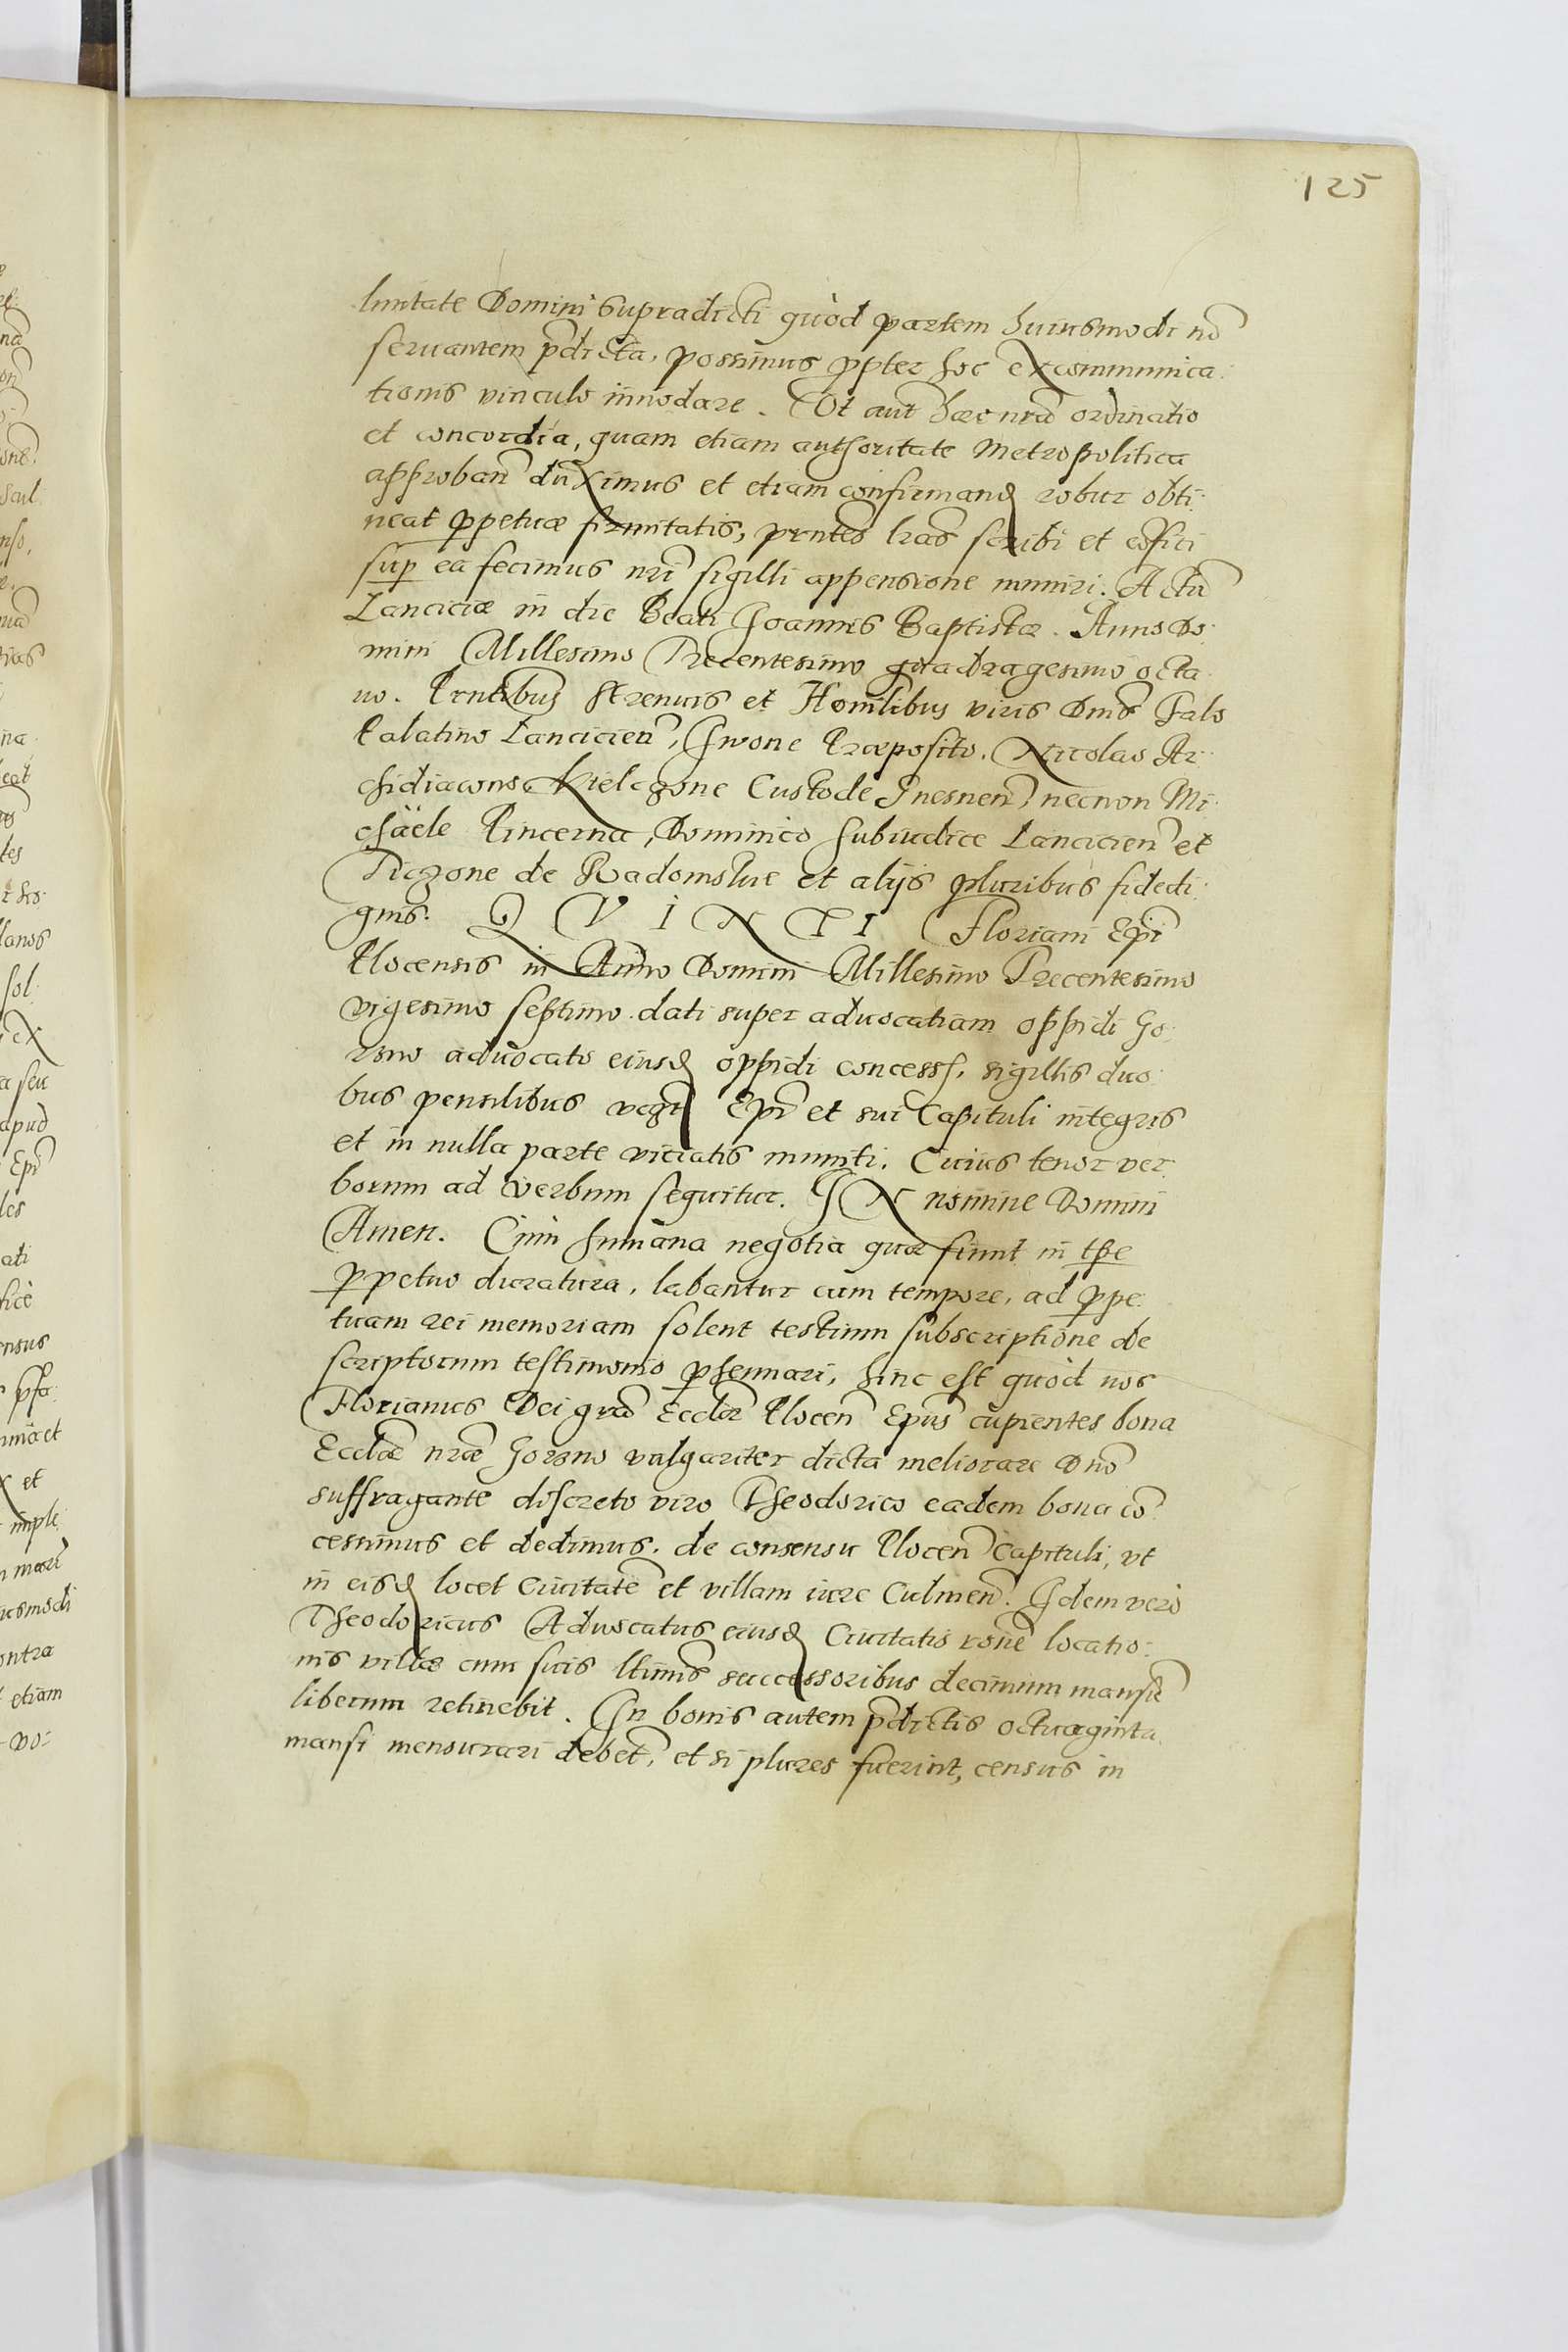 125
luntate Domini supradicti quòd partem huiusmodi nõ
seruantem p̃dicta, possimus ꝓpter hoc excommunica:
tionis vinculo innodare. Vt aut̃ haec nr̃a ordinatio
et concordia, quam etiam authoritate Metropolitica
approban̄ duximus et etiam confirmand̄ robur obti:
neat ꝑpetuæ firmitatis, pr̃ntes l̃ras scribi et cõfici
sup̱ ea fecimus nr̃i sigilli appensione muniri. Actũ
Lanciciæ in die Beati Joannis Baptistæ. Anno Do:
mini Millesimo Trecentesimo quadragesimo octa
uo. Pr̃ntibus Strenuis et Honilibus viris Dnĩs Falo
Palatino Lancicien̄, Iwone Præposito. Nicolao Ar:
chidiacono, Kielczone Custode Gnesnen̄, necnon Mi:
chäele Pincerna, Dominico subiudice Lancicien̄ et
Ticzone de Radomstue et alijs pluribus fidedi:
gnis. QVINTI Floriani Ep̃i
Plocensis in Anno Domini Millesimo Trecentesimo
vigesimo septimo dati super aduocatiam oppidi Go:
rzno aduocato eiusd̄ oppidi concess̄, sigillis duo:
bus pensilibus Ep̃i et sui Capituli integris
et in nulla parte viciatis muniti. Cuius tenor ver
borum ad verbum sequitur. IN nomine Domini
Amen. Cum humana negotia quæ fiunt in tp̱e
ꝑpetuo duratura, labantur cum tempore, ad ꝑpe:
tuam rei memoriam solent testium subscriptione de
scriptorum testimonio ꝑhennari, hinc est quòd nos
Florianus Dei gr̃a Eccl̃æ Plocen̄ Ep̃us cupientes bona
Eccl̃æ nr̃æ Gorzno vulgariter dicta meliorare Dnõ
suffragante discreto viro Theodorico eadem bona cõ
cessimus et dedimus, de consensu Plocen̄ Capituli, vt
in eisd̄ locet Ciuitatẽ et villam iure Culmen̄. Idem verò
Theodoricus Aduocatus eiusd̄ Ciuitatis rõne locatio:
nis villæ cum suis l̃timis successoribus decimum mansũ
liberum retinebit. In bonis autem p̃dictis octuaginta
mansi mensurari debẽt, et si plures fuerint, census in